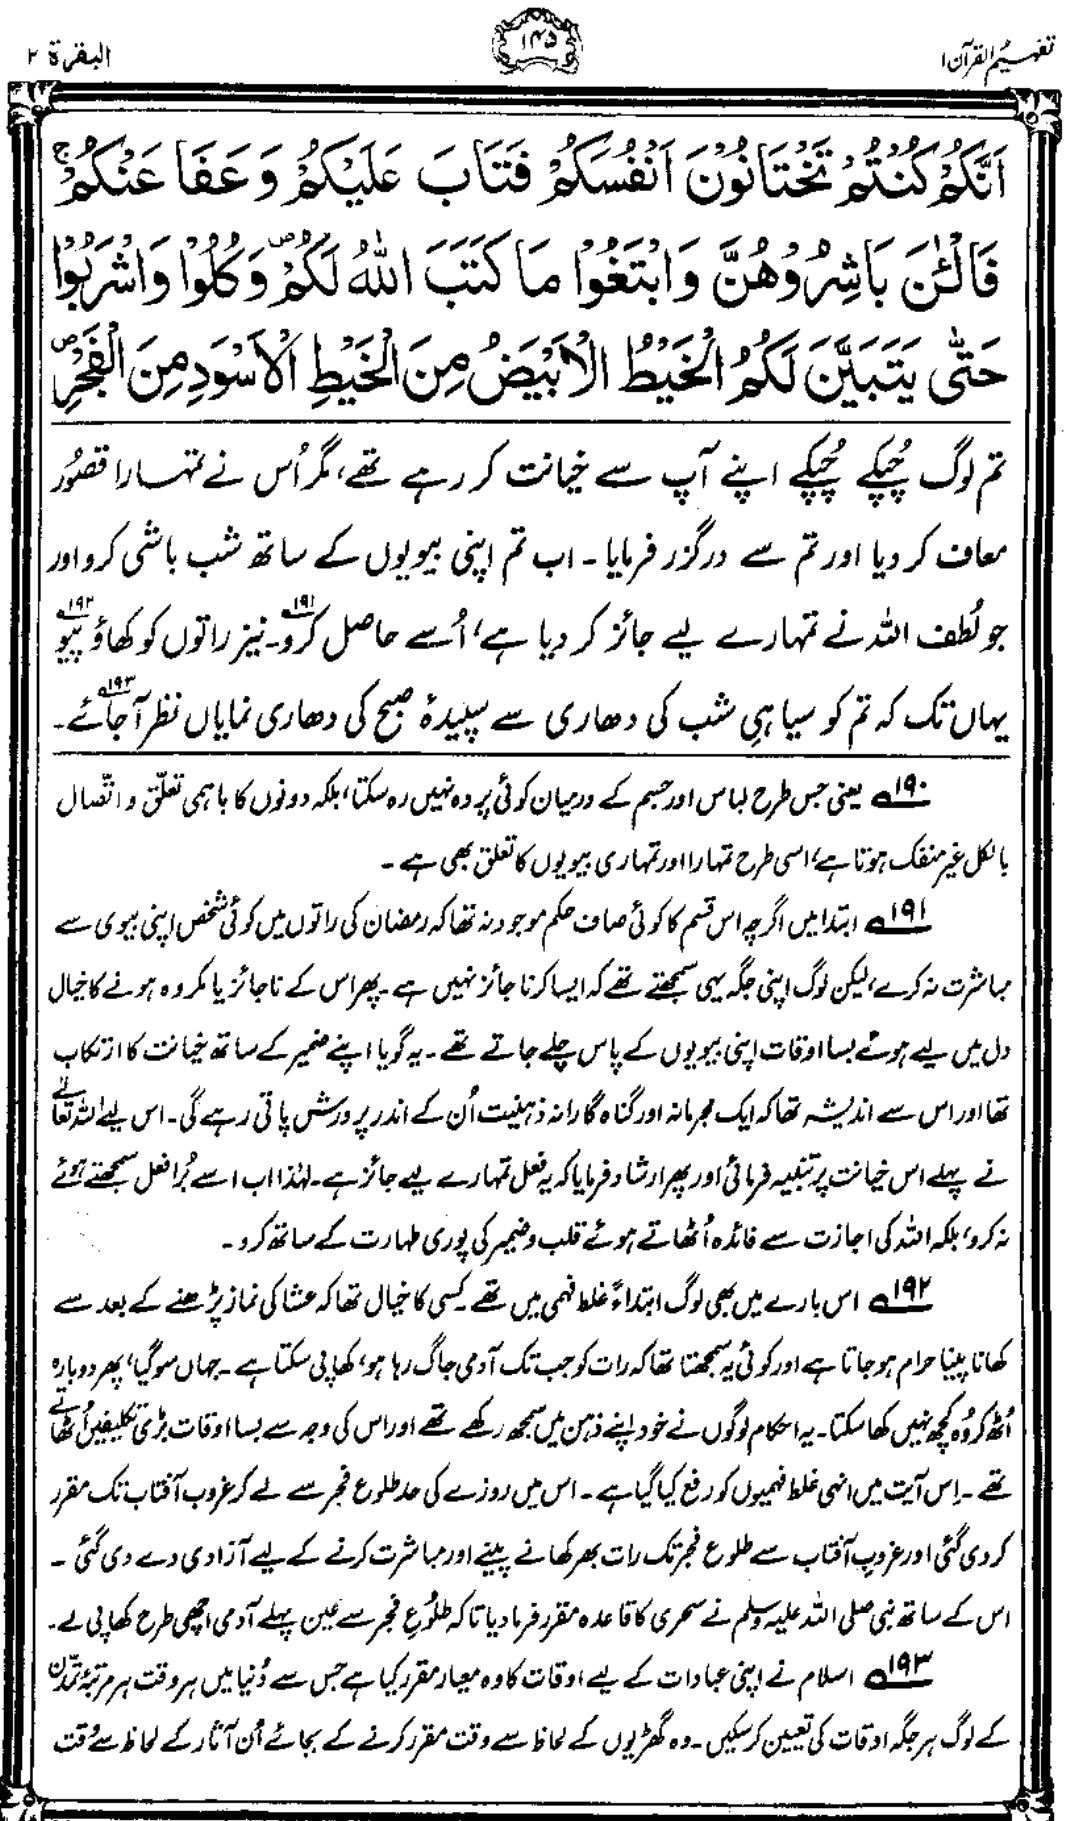 تفہیم القرآن ۱
۱۴۵
البقرۃ ۲
اَنَّكُمْ كُنْتُمْ تَخْتَانُوْنَ اَنْفُسَكُمْ فَتَابَ عَلَيْكُمْ وَعَفَا عَنْكُمْ ۚ
فَالْـٰٔنَ بَاشِرُوْهُنَّ وَابْتَغُوْا مَا كَتَبَ اللّٰهُ لَكُمْ ۪ وَكُلُوْا وَاشْرَبُوْا
حَتّٰى يَتَبَيَّنَ لَكُمُ الْخَيْطُ الْاَبْيَضُ مِنَ الْخَيْطِ الْاَسْوَدِ مِنَ الْفَجْرِ ۪
تم لوگ چُپکے چُپکے اپنے آپ سے خیانت کر رہے تھے، مگر اُس نے تمہارا قصُور
معاف کر دیا اور تم سے درگزر فرمایا۔ اب تم اپنی بیویوں کے ساتھ شب باشی کرو اور
جو لُطف اللہ نے تمہارے لیے جائز کر دیا ہے، اُسے حاصل کرو۱۹۱۔ نیز راتوں کو کھاؤ پیو۱۹۲
یہاں تک کہ تم کو سیاہیِ شب کی دھاری سے سپیدۂ صبح کی دھاری نمایاں نظر آجائے۱۹۳۔
۱۹۰ یعنی جس طرح لباس اور جسم کے درمیان کوئی پردہ نہیں رہ سکتا، بلکہ دونوں کا باہمی تعلّق و اتّصال
بالکل غیر منفک ہوتا ہے، اسی طرح تمہارا اور تمہاری بیویوں کا تعلق بھی ہے۔
۱۹۱ ابتدا میں اگرچہ اس قسم کا کوئی صاف حکم موجود نہ تھا کہ رمضان کی راتوں میں کوئی شخص اپنی بیوی سے
مباشرت نہ کرے، لیکن لوگ اپنی جگہ یہی سمجھتے تھے کہ ایسا کرنا جائز نہیں ہے۔ پھر اس کے ناجائز یا مکروہ ہونے کا خیال
دل میں لیے ہوئے بسا اوقات اپنی بیویوں کے پاس چلے جاتے تھے۔ یہ گویا اپنے ضمیر کے ساتھ خیانت کا ارتکاب
تھا اور اس سے اندیشہ تھا کہ ایک مجرمانہ اور گناہ گارانہ ذہنیت اُن کے اندر پرورش پاتی رہے گی۔ اس لیے اللہ تعالیٰ
نے پہلے اس خیانت پر تنبیہ فرمائی اور پھر ارشاد فرمایا کہ یہ فعل تمہارے لیے جائز ہے۔ لہٰذا اب اسے بُرا فعل سمجھتے ہوئے
نہ کرو، بلکہ اللہ کی اجازت سے فائدہ اُٹھاتے ہوئے قلب و ضمیر کی پوری طہارت کے ساتھ کرو۔
۱۹۲ اس بارے میں بھی لوگ ابتداءً غلط فہمی میں تھے۔ کسی کا خیال تھا کہ عشا کی نماز پڑھنے کے بعد سے
کھانا پینا حرام ہو جاتا ہے اور کوئی یہ سمجھتا تھا کہ رات کو جب تک آدمی جاگ رہا ہو، کھا پی سکتا ہے۔ جہاں سو گیا، پھر دوبارہ
اُٹھ کر وُہ کچھ نہیں کھا سکتا۔ یہ احکام لوگوں نے خود اپنے ذہن میں سمجھ رکھے تھے اور اس کی وجہ سے بسا اوقات بڑی تکلیفیں اُٹھاتے
تھے۔ اِس آیت میں انہی غلط فہمیوں کو رفع کیا گیا ہے۔ اس میں روزے کی حد طلوعِ فجر سے لے کر غروب آفتاب تک مقرر
کر دی گئی اور غروبِ آفتاب سے طلوع فجر تک رات بھر کھانے پینے اور مباشرت کرنے کے لیے آزادی دے دی گئی۔
اس کے ساتھ نبی صلی اللہ علیہ وسلم نے سحری کا قاعدہ مقرر فرما دیا تاکہ طلُوعِ فجر سے عین پہلے آدمی اچھی طرح کھا پی لے۔
۱۹۳ اسلام نے اپنی عبادات کے لیے اوقات کا وہ معیار مقرر کیا ہے جس سے دُنیا میں ہر وقت ہر مرتبۂ تمدّن
کے لوگ ہر جگہ اوقات کی تعیین کر سکیں۔ وہ گھڑیوں کے لحاظ سے وقت مقرر کرنے کے بجائے اُن آثار کے لحاظ سے وقت